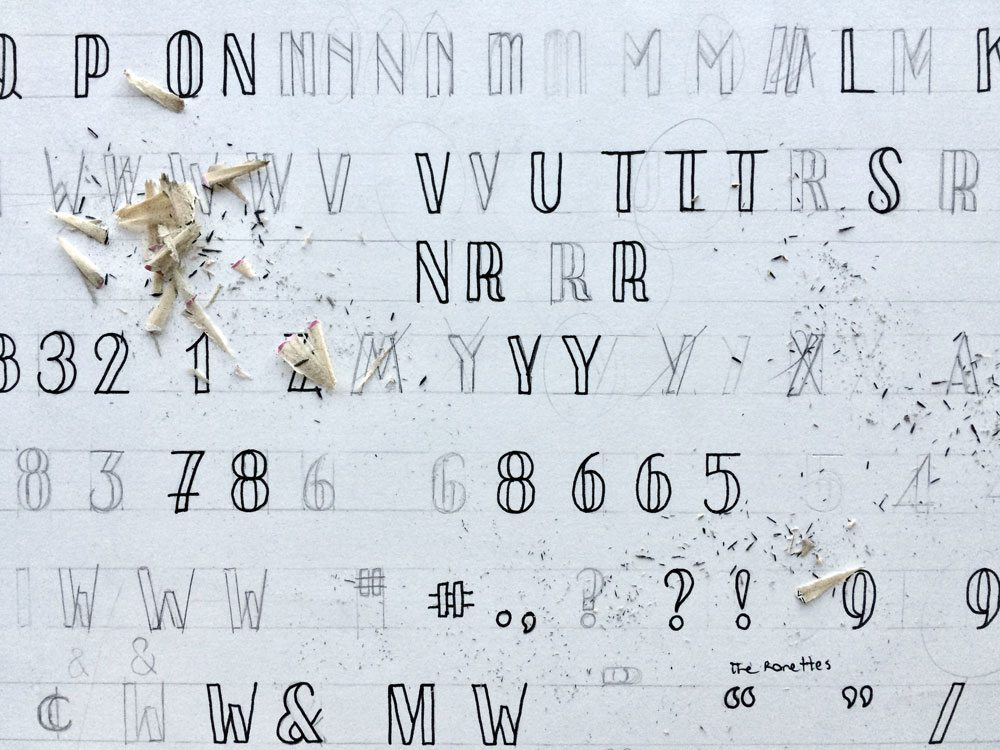 Q P O N N N N N m m M M M L M K
W W W W V V V U T I T R S R
N R R R
3 3 2 1 2 M Y Y Y X X A
8 3 7 8 6 6 8 6 6 5 5 4
W W W # # . , ? ? ! 9 9
& & The Ronettes
¢ W W & M W “ ” /